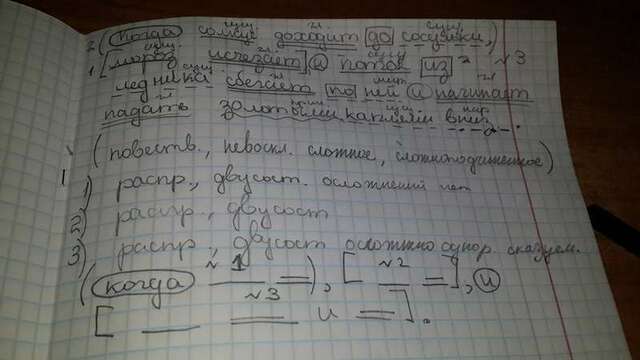 (Когда солнце доходит до сосульки,)
[мороз исчезает] и поток из ~3
ледника сбегает по ней и начинает
падать золотыми каплями вниз.
(повеств., невоскл. сложное, сложноподчиненное)
1) распр., двусост. осложнений нет
2) распр., двусост
3) распр., двусост осложнено однор. сказуем.
(когда ~1), [~2], и
~3
[ и ].